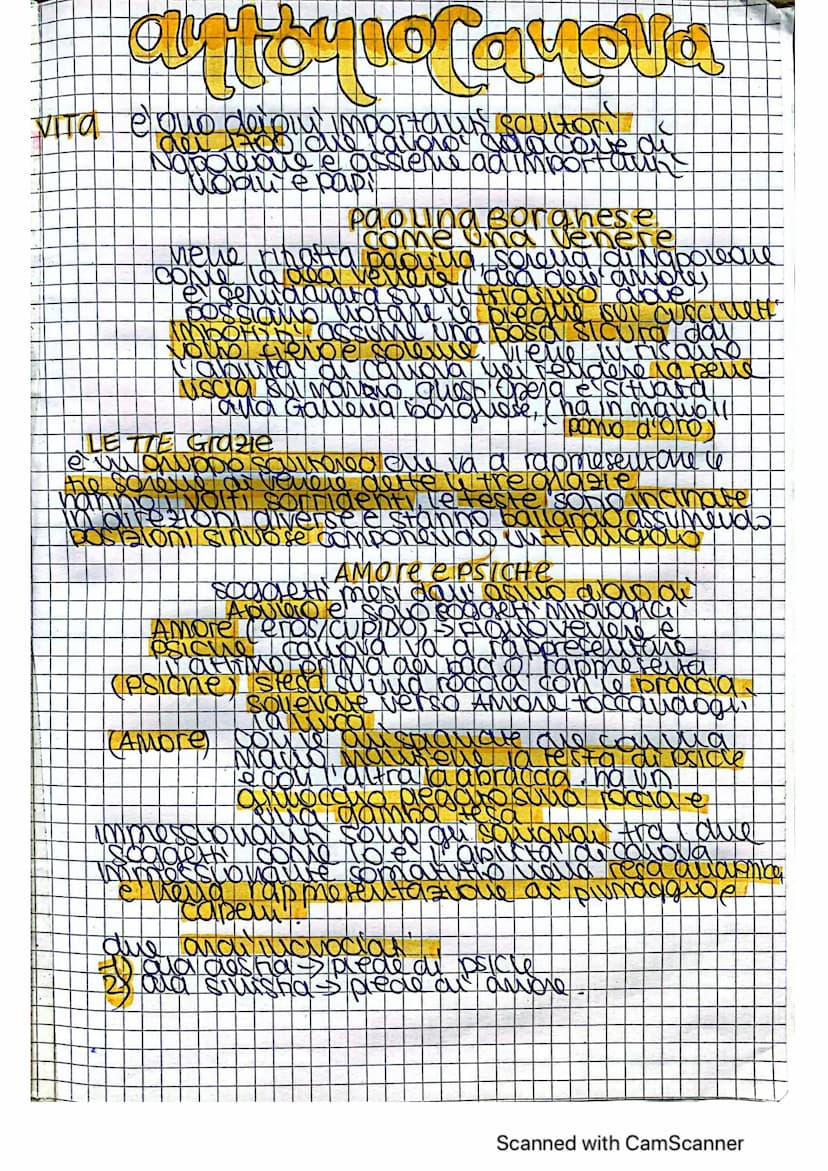 antonio Canova
VITA è uno dei più importanti scultori
del 700 che lavorò alla corte di
Napoleone e assieme ad importanti
nobili e papi
PAOLINA BORGHESE
COME UNA VENERE
viene ritratta paolina, sorella di Napoleone
come la dea venere (dea dell'amore)
è semidraiata su un triclinio dove
possiamo notare le pieghe sui cuscinetti
imbottiti, assume una posa sicura dal
volto fiero e solenne, viene in risalto
l'abilità di canova nel rendere la pelle
liscia sul marmo, quest'opera è situata
alla Galleria borghese, (ha in mano il
pomo d'oro)
LE TRE Grazie
è un gruppo scultoreo che va a rappresentare le
tre sorelle di venere dette le tre grazie
hanno i volti sorridenti le teste sono inclinate
in direzioni diverse e stanno ballando assumendo
posizioni sinuose componendo un triangolo
AMORE e PSICHE
soggetti presi dall'asino d'oro di
Apuleio e sono soggetti mitologici
AMORE (eros/cupido) → figlio venere e
psiche canova va a rappresentare
l'attimo prima del bacio rappresenta
(PSICHE) stesa su una roccia con le braccia
sollevate verso Amore toccandogli
la nuca
(Amore) con le ali spiegate che con una
mano mantiene la testa di psiche
e con l'altra la abbraccia, ha un
ginocchio poggiato sulla roccia e
una gamba tesa
Impressionanti sono gli sguardi tra i due
soggetti come lo è l'abilità di canova
impressionante soprattutto nella resa anatomica
e nella rappresentazione di piumaggio e
capelli.
due archi incrociati
1) ala destra → piede di psiche
2) ala sinistra → piede di amore.
Scanned with CamScanner